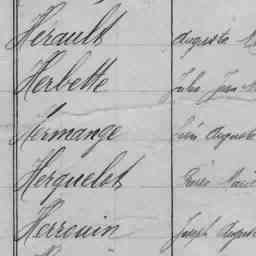 Hérault Auguste
Herbette Jules Jean
Hermange Auguste
Herquelot Marie
Herrouin Joseph Auguste